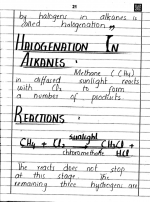 21
by halogens in alkanes is
called halogenation
HALOGENATION IN
ALKANES :
Methane (CH4)
in diffused sunlight reacts
with Cl2 to form
a number of products.
REACTIONS :
sunlight
CH4 + Cl2 → CH3Cl +
chloromethane HCl
The reacts does not stop
at this stage. The
remaining three hydrogens are